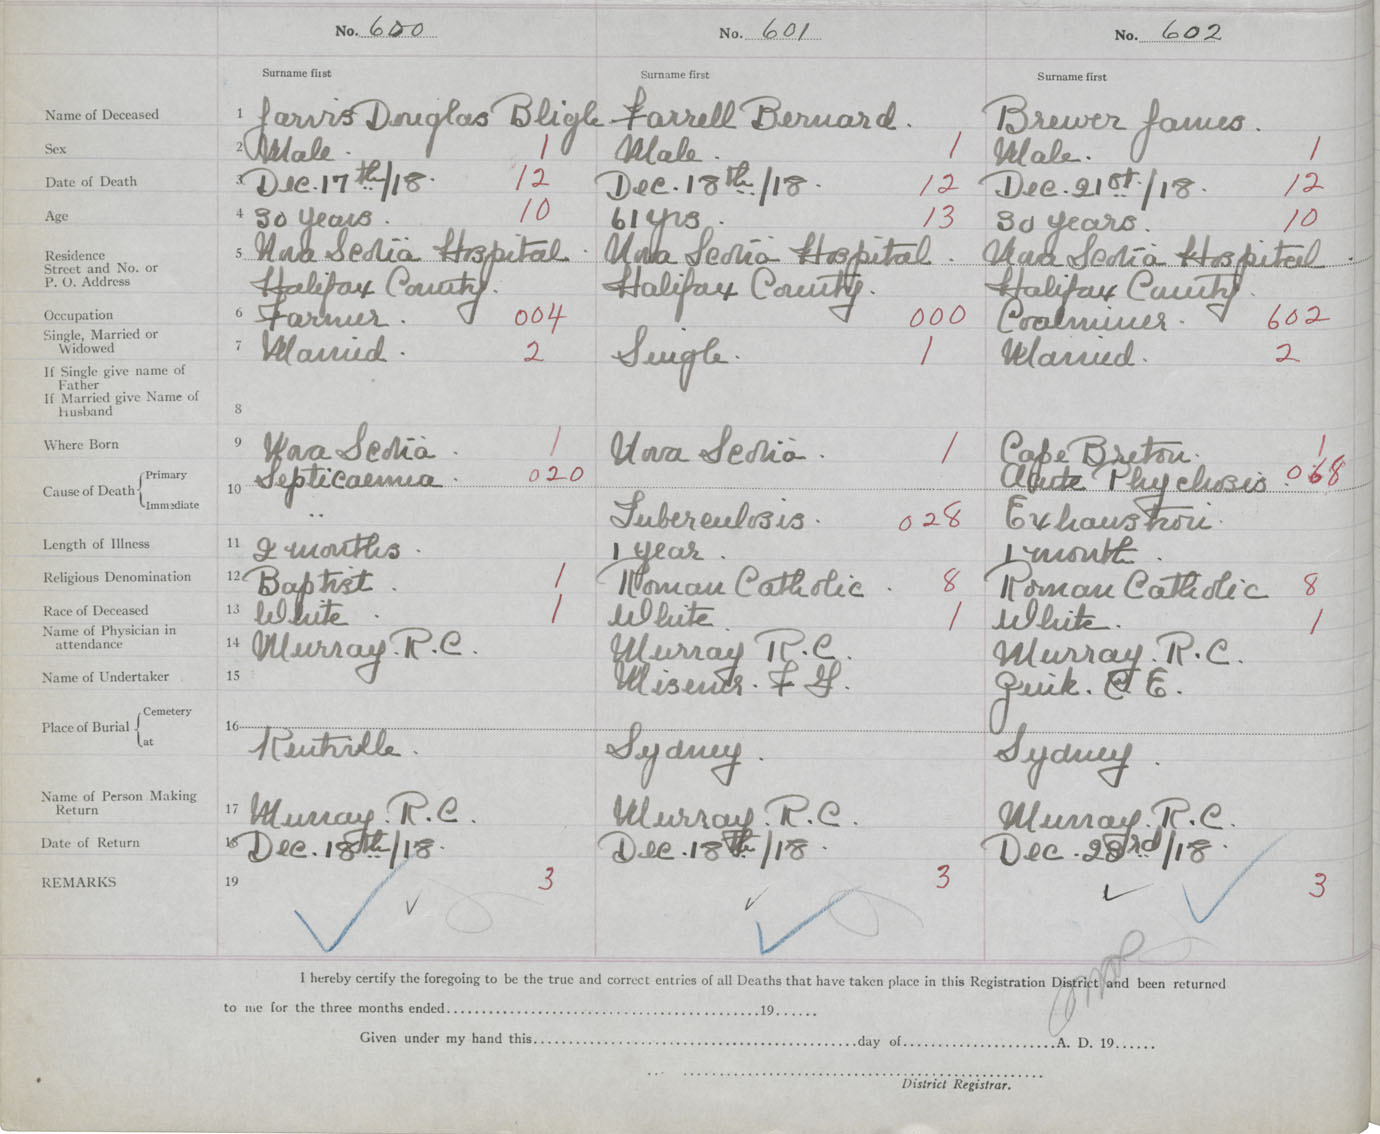 No. 600 No. 601 No. 602
Surname first Surname first Surname first
Name of Deceased 1 Jarvis Douglas Bligh Farrell Bernard. Brewer James.
Sex 2 Male. 1 Male. 1 Male. 1
Date of Death 3 Dec. 17th/18. 12 Dec. 18th/18. 12 Dec. 21st/18. 12
Age 4 30 years. 10 61 yrs. 13 30 years. 10
Residence 5 Nova Scotia Hospital. Nova Scotia Hospital. Nova Scotia Hospital.
Street and No. or
P. O. Address Halifax County. Halifax County. Halifax County.
Occupation 6 Farmer. 004 000 Coalminer. 602
Single, Married or
Widowed 7 Married. 2 Single. 1 Married. 2
If Single give name of
Father
If Married give Name of
Husband 8
Where Born 9 Nova Scotia. 1 Nova Scotia. 1 Cape Breton. 1
Cause of Death Primary 10 Septicaemia. 020 Acute Phychosis. 068
Immediate " Tuberculosis. 028 Exhaustion.
Length of Illness 11 2 months. 1 year. 1 month.
Religious Denomination 12 Baptist. 1 Roman Catholic. 8 Roman Catholic 8
Race of Deceased 13 White. 1 White 1 White. 1
Name of Physician in
attendance 14 Murray. R.C. Murray R.C. Murray. R.C.
Name of Undertaker 15 Misener. F G. C E.
Place of Burial Cemetery 16
at Kentville. Sydney. Sydney.
Name of Person Making
Return 17 Murray. R.C. Murray. R.C. Murray. R.C.
Date of Return 18 Dec. 18th/18. Dec. 18th/18. Dec. 23rd/18.
REMARKS 19 3 3 3
I hereby certify the foregoing to be the true and correct entries of all Deaths that have taken place in this Registration District and been returned
to me for the three months ended..........19......
Given under my hand this..........day of..........A. D. 19......
District Registrar.